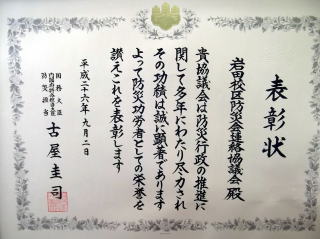 表彰状
岩田校区防災会連絡協議会殿
貴協議会は防災行政の推進に
関して多年にわたり尽力され
その功績は誠に顕著であります
よって防災功労者としての栄誉を
讃えこれを表彰します
平成二十六年九月二日
国務大臣
内閣府特命担当大臣
防災担当
古屋圭司